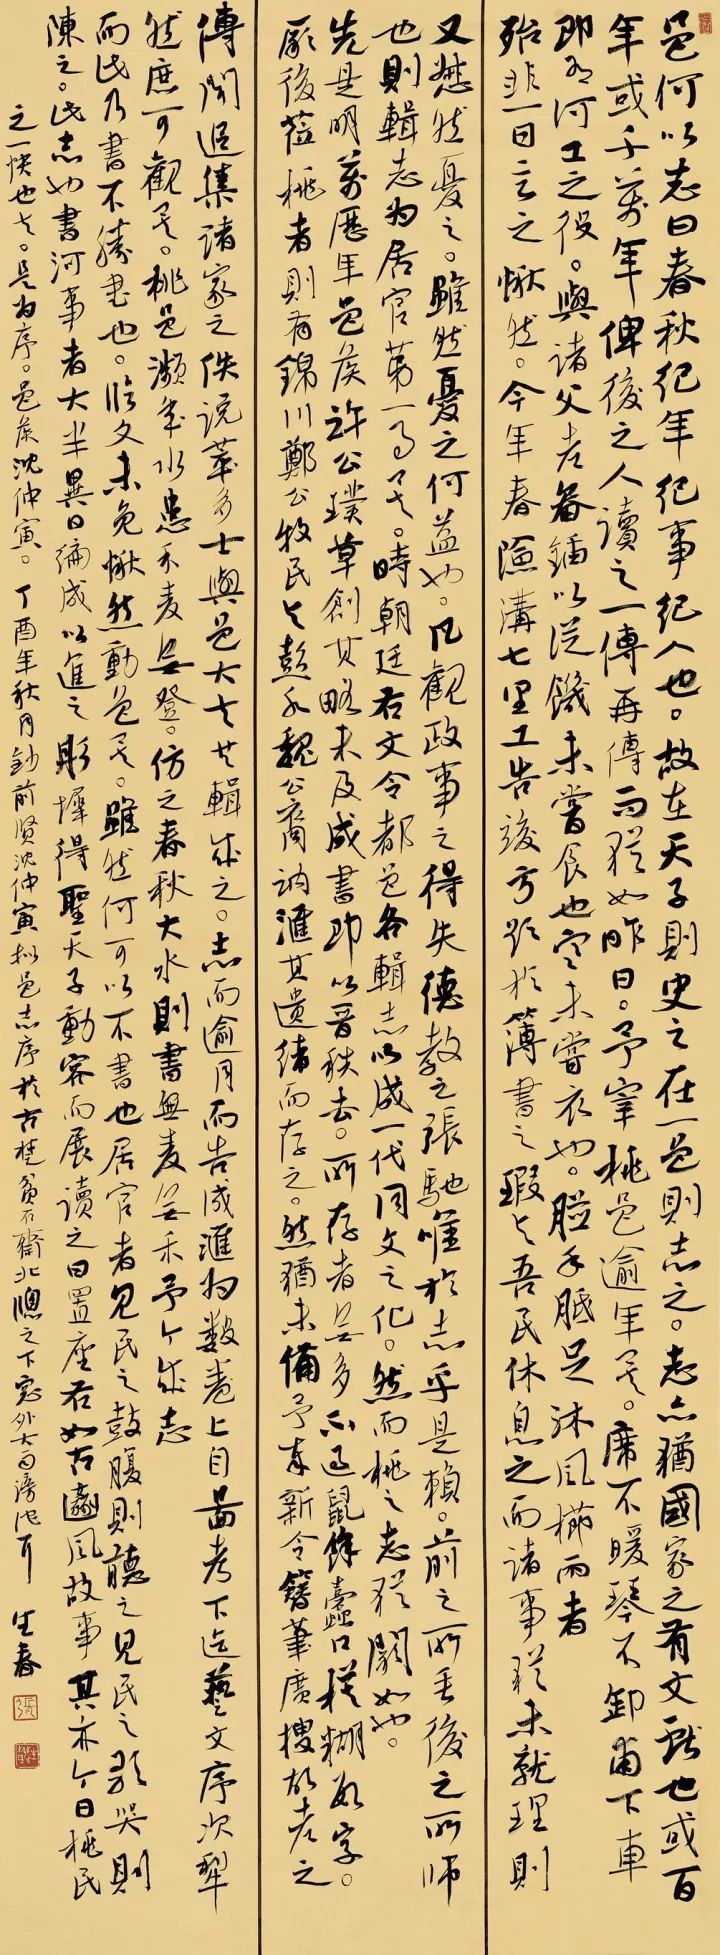 邑何以志曰春秋纪年纪事纪人也。故在天子則史之在一邑則志之。志亦猶國家之有文献也或百
年或千萬年俾後之人讀之一傳再傳而猶如昨日。予宰桃邑逾年矣。席不暖琴不卸甫下車
即有河工之役。與諸父老畚鍤以從饑未嘗食也寒未嘗衣也。胼手胝足沐風櫛雨者
殆非一日言之愀然。今年春濬溝七里工告竣方於簿書之暇與吾民休息之而諸事猶未就理則
又愀然憂之。雖然憂之何益也。凡觀政事之得失德教之張馳惟於志乎是賴。前之所垂後之所师
也則輯志为居官第一事矣。時朝廷右文令都邑各輯志以成一代同文之化。然而桃之志猶闕如也。
先是明萬曆年邑侯許公璞草創其略未及成書即以晋秩去。所存者無多不過鼠餘蠹口模糊數字。
厥後蒞桃者則有錦川鄭公牧民與彭水魏公裔訥滙其遺绪而存之。然猶未備予奉新令簪筆廣搜故老之
傳聞逅集諸家之佚説萃多士與邑大夫共輯成之。志而逾月而告成滙为數卷上自圖考下迄藝文序次犁
然庶可觀矣。桃邑瀕年水患禾麦無登。仿之春秋大水則書無麦無禾予今成志
而此乃書不勝書也。臨文未免愀然動色矣。雖然何可以不書也居官者見民之鼓腹則聽之見民之歌哭則
陳之。此志也書河事者大半異日編成以進之彤墀得聖天子動容而展讀之曰置座右如古豳風故事其亦今日桃民
之一快也夫。是为序。邑侯沈仲寅。丁酉年秋月鈔前贤沈仲寅拟邑志序於古楚貧石齋北牕之下窓外大雨滂沱耳 生春